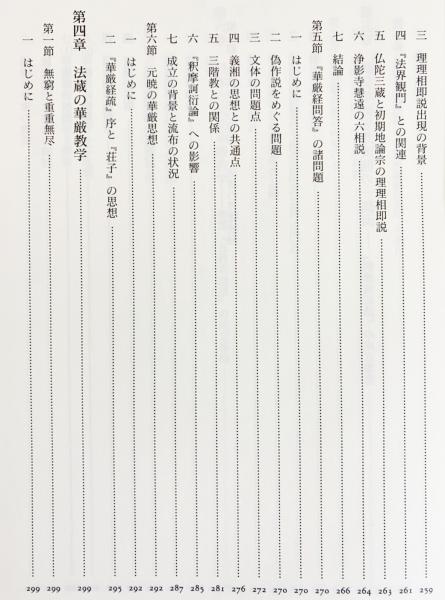 三　理理相即説出現の背景……259
四　『法界観門』との関連……261
五　仏陀三蔵と初期地論宗の理理相即説……263
六　浄影寺慧遠の六相説……264
七　結論……266
第五節　『華厳経問答』の諸問題……270
一　はじめに……270
二　偽作説をめぐる問題……270
三　文体の問題点……272
四　義湘の思想との共通点……276
五　三階教との関係……281
六　『釈摩訶衍論』への影響……285
七　成立の背景と流布の状況……287
第六節　元暁の華厳思想……292
一　はじめに……292
二　『華厳経疏』序と『荘子』の思想……295
第四章　法蔵の華厳教学……299
第一節　無窮と重重無尽……299
一　はじめに……299